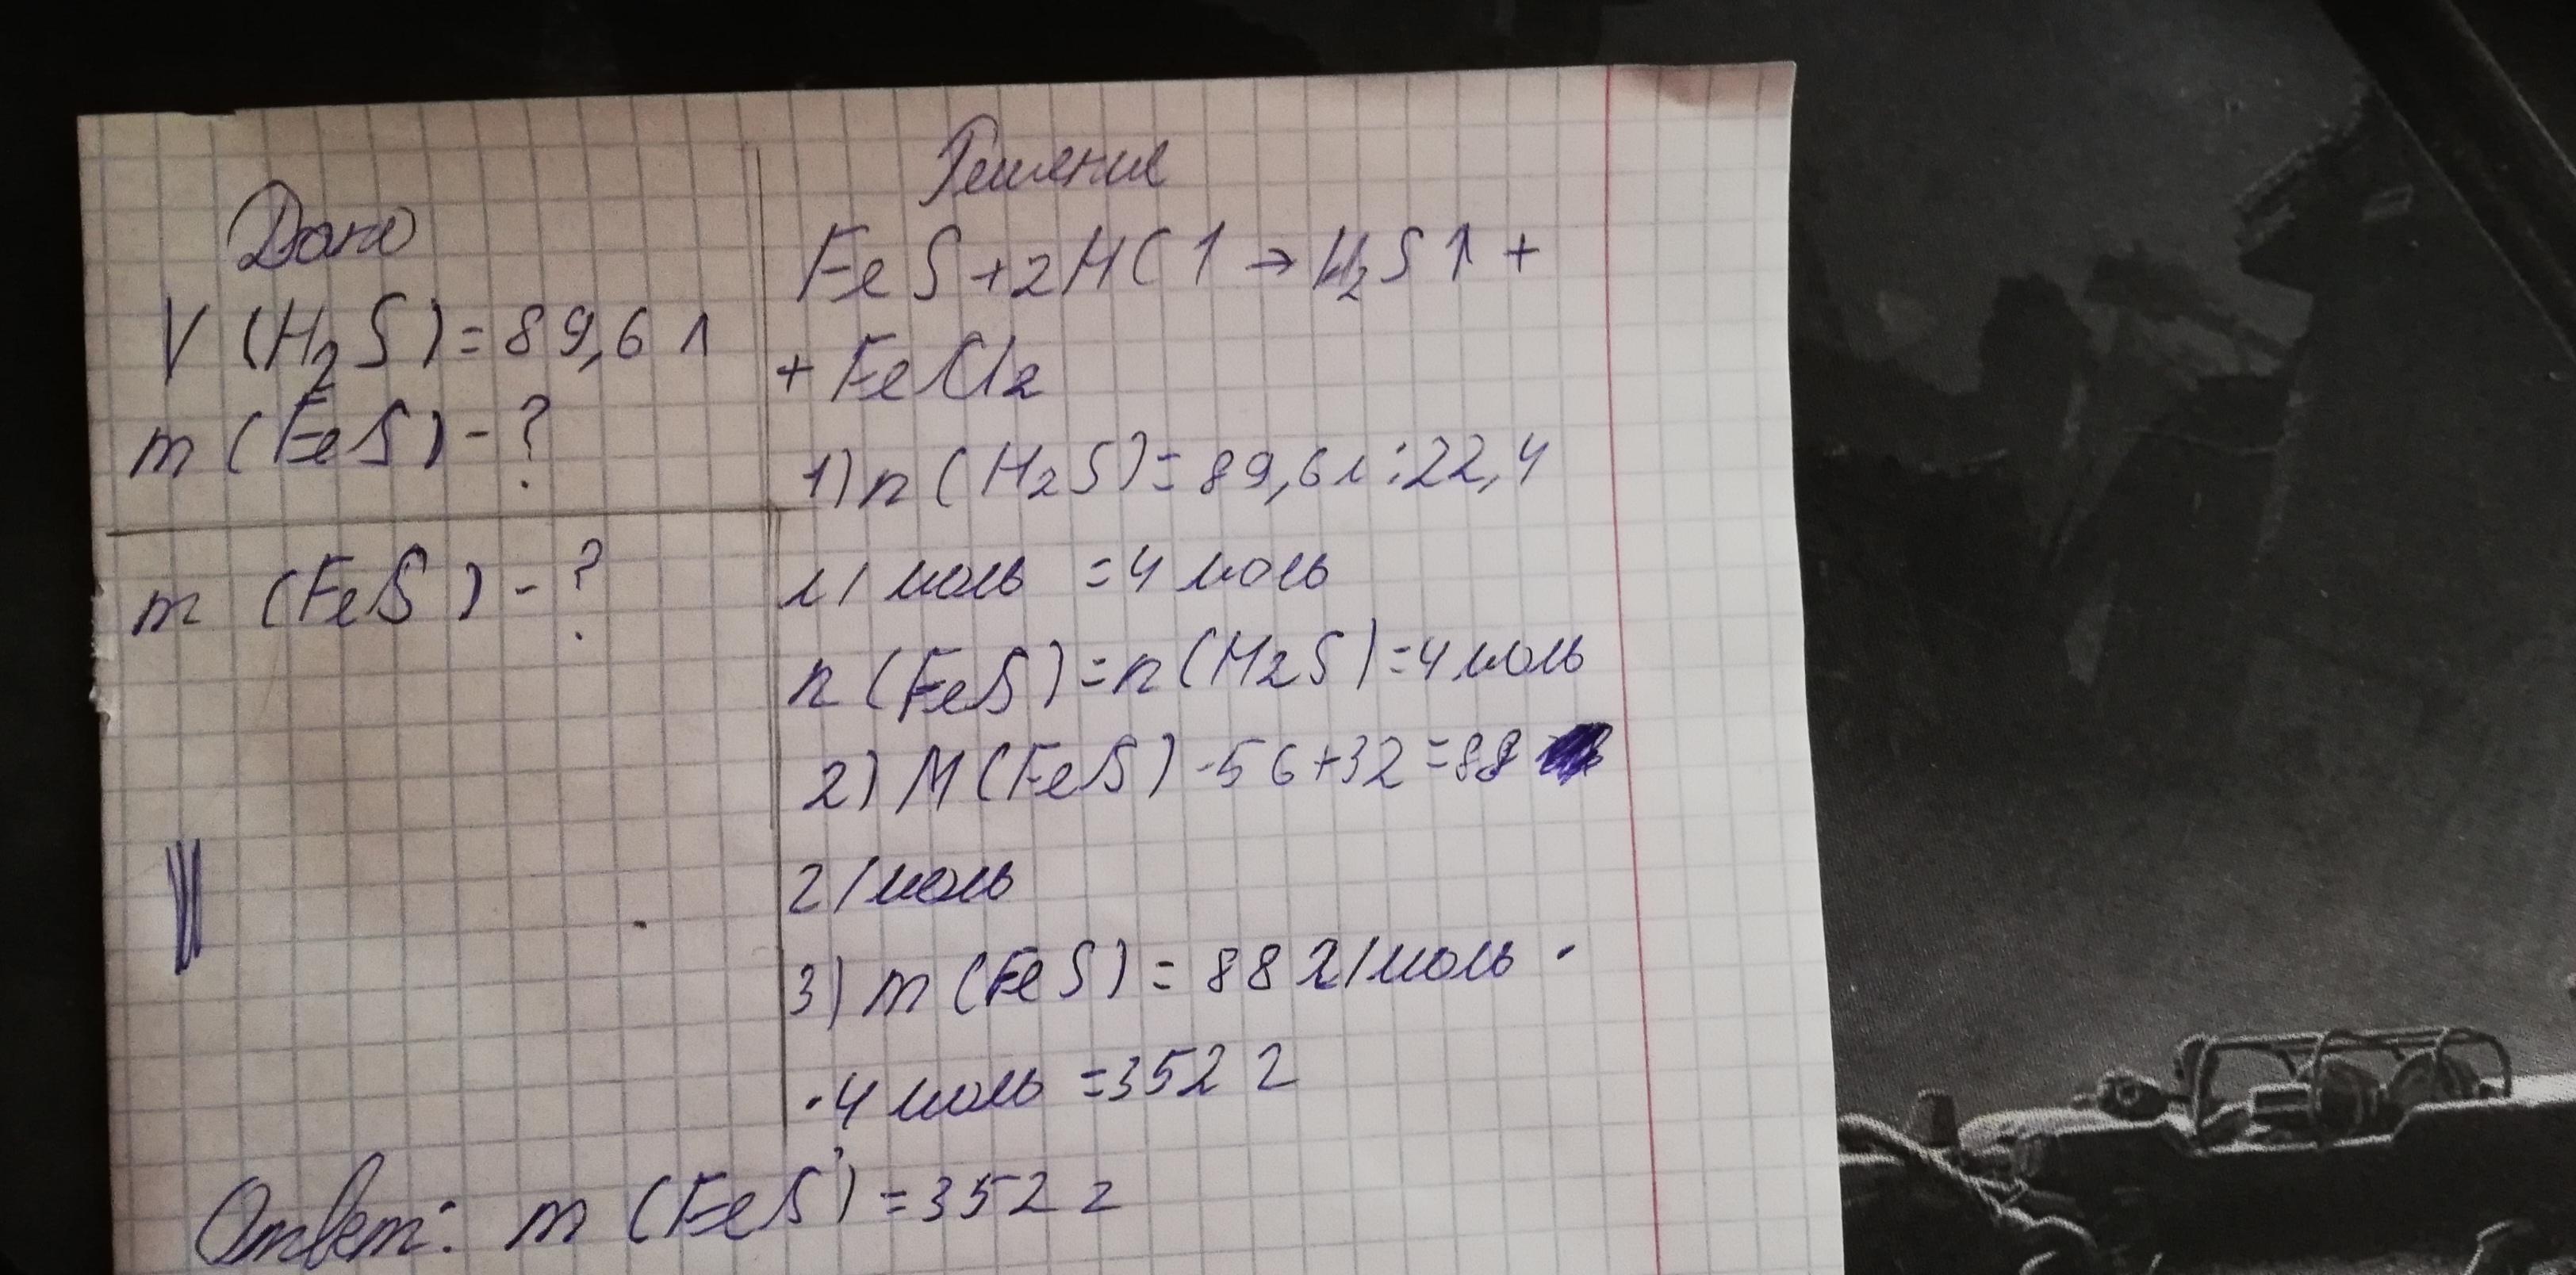 Дано
V (H2S) = 89,6 л
m (FeS) - ?
m (FeS) - ?
Решение
FeS + 2HCl → H2S↑ +
+ FeCl2
1) n (H2S) = 89,6 л : 22,4
л/моль = 4 моль
n (FeS) = n (H2S) = 4 моль
2) M (FeS) - 56 + 32 = 88
г/моль
3) m (FeS) = 88 г/моль ·
· 4 моль = 352 г
Ответ: m (FeS) = 352 г